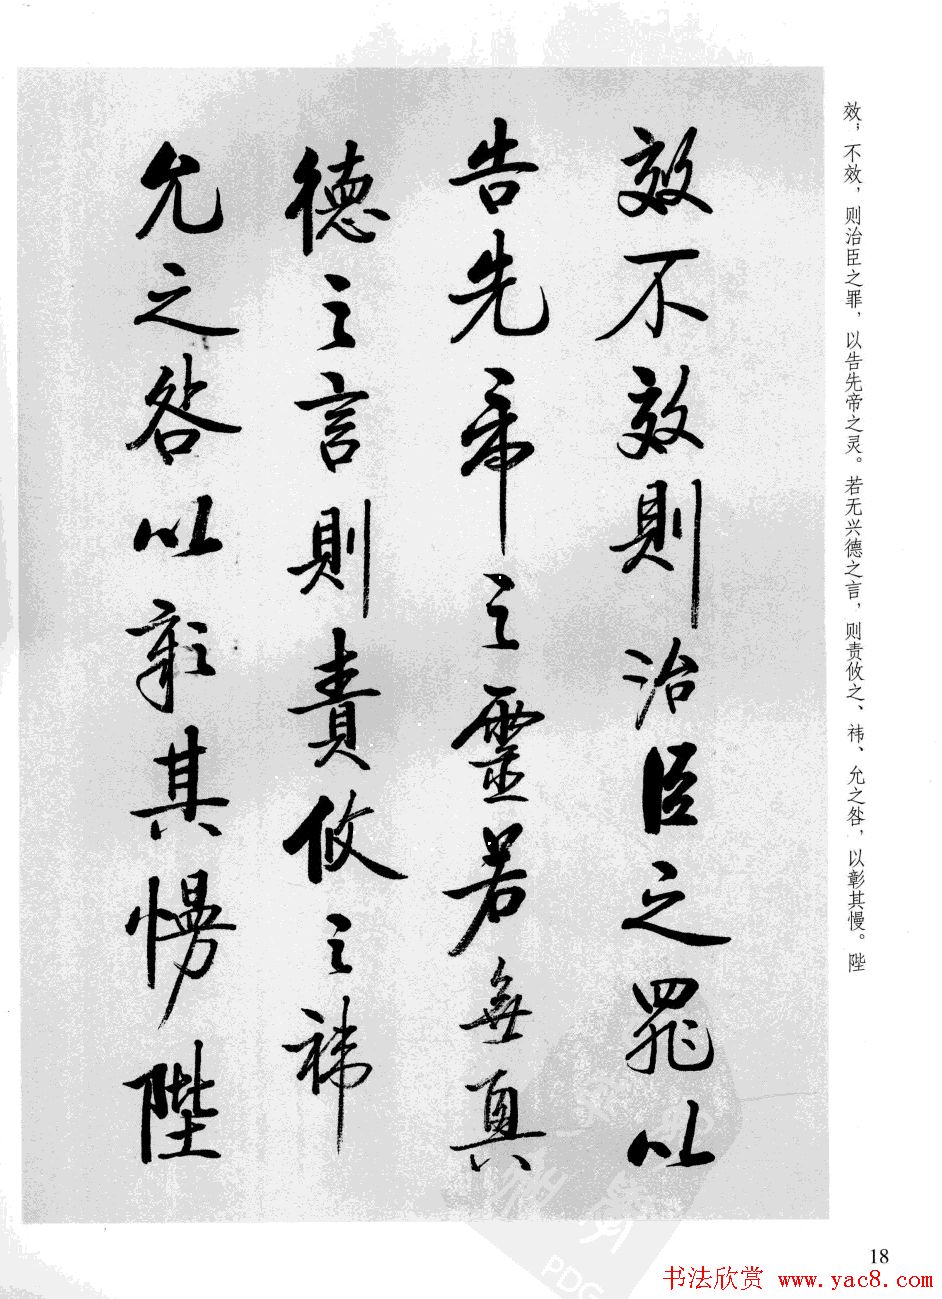 效，不效，则治臣之罪，以告先帝之灵。若无兴德之言，则责攸之、祎、允之咎，以彰其慢。陛
效不效則治臣之罪以
告先帝之靈若無興
德之言則責攸之禕
允之咎以彰其慢陛
PDG
18
书法欣赏 www.yac8.com